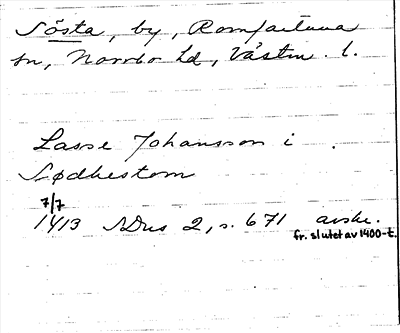 Sösta, by, Romfartuna
sn, Norrbo hd, Västm. l.
Lasse Johansson i
Sødhestom
7/7
1413 SDns 2, s. 671 avskr.
fr. slutet av 1400-t.